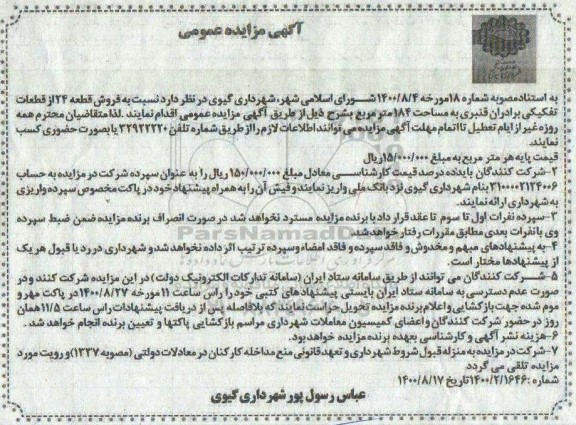 آگهی مزایده عمومی
به استناد مصوبه شماره ۱۸ مورخه ۱۴۰۰/۸/۴ شـــورای اسلامی شهر، شهرداری گیوی در نظر دارد نسبت به فروش قطعه ۲۴ از قطعات
تفکیکی برادران قنبری به مساحت ۱۸۴ متر مربع بشرح ذیل از طریق آگهی مزایده عمومی اقدام نمایند .لذا متقاضیان محترم همه
روزه غیر از ایام تعطیل تا اتمام مهلت آگهی مزایده می توانند اطلاعات لازم را از طریق شماره تلفن ۳۲۹۲۲۲۲۰ یا بصورت حضوری کسب
نمایند.
قیمت پایه هر متر مربع به مبلغ ۱۵/۰۰۰/۰۰۰ریال
۲-شرکت کنندگان باید ده درصد قیمت کارشناسـی معادل مبلغ ۱۵۰/۰۰۰/۰۰۰ ریال را به عنوان سپرده شرکت در مزایده به حساب
۳۱۰۰۰۰۲۱۲۴۰۰۶ بنام شهرداری گیوی نزد بانک ملی واریز نمایند و فیش آن را به همراه پیشنهاد خود در پاکت مخصوص سپرده واریزی
به شهرداری ارائه نمایند.
۳-سپرده نفرات اول تا سوم تا عقد قرار داد با برنده مزایده مسترد نخواهد شد در صورت انصراف برنده مزایده ضمن ضبط سپرده
وی با نفرات بعدی مطابق مقررات رفتار خواهد شد.
۴-به پیشنهادهای مبهم و مخدوش و فاقد سپرده و فاقد امضاء و سپرده ترتیب اثر داده نخواهد شد و شهرداری در رد یا قبول هر یک
از پیشنهادها مختار است.
۵-شــرکت کنندگان می توانند از طریق سامانه ستاد ایران (سامانه تدارکات الکترونیک دولت) در این مزایده شرکت کنند و در
صورت عدم دسترسی به سامانه ستاد ایران بایستی پیشنهادهای کتبی خود را راس ساعت ۱۱ مورخه ۱۴۰۰/۸/۲۷ در پاکت مهر و
موم شده جهت بازگشایی و اعلام برنده مزایده تحویل حراست نمایند که بلافاصله پس از دریافت پیشنهادات راس ساعت ۱۱/۵ همان
روز در حضور شرکت کنندگان و اعضای کمیسیون معاملات شهرداری مراسم بازگشایی پاکتها و تعیین برنده انجام خواهد شد.
۶-هزینه نشر آگهی و کارشناسی بعهده برنده مزایده خواهد بود.
۷-شرکت در مزایده به منزله قبول شروط شهرداری و تعهد قانونی منع مداخله کارکنان در معادلات دولتی (مصوبه ۱۳۳۷) و رویت مورد
مزایده تلقی می گردد
شماره :۱۴۰۰/۲/۱۶۴۶تاریخ ۱۴۰۰/۸/۱۷
عباس رسول پور شهرداری گیوی
ParsNamadData